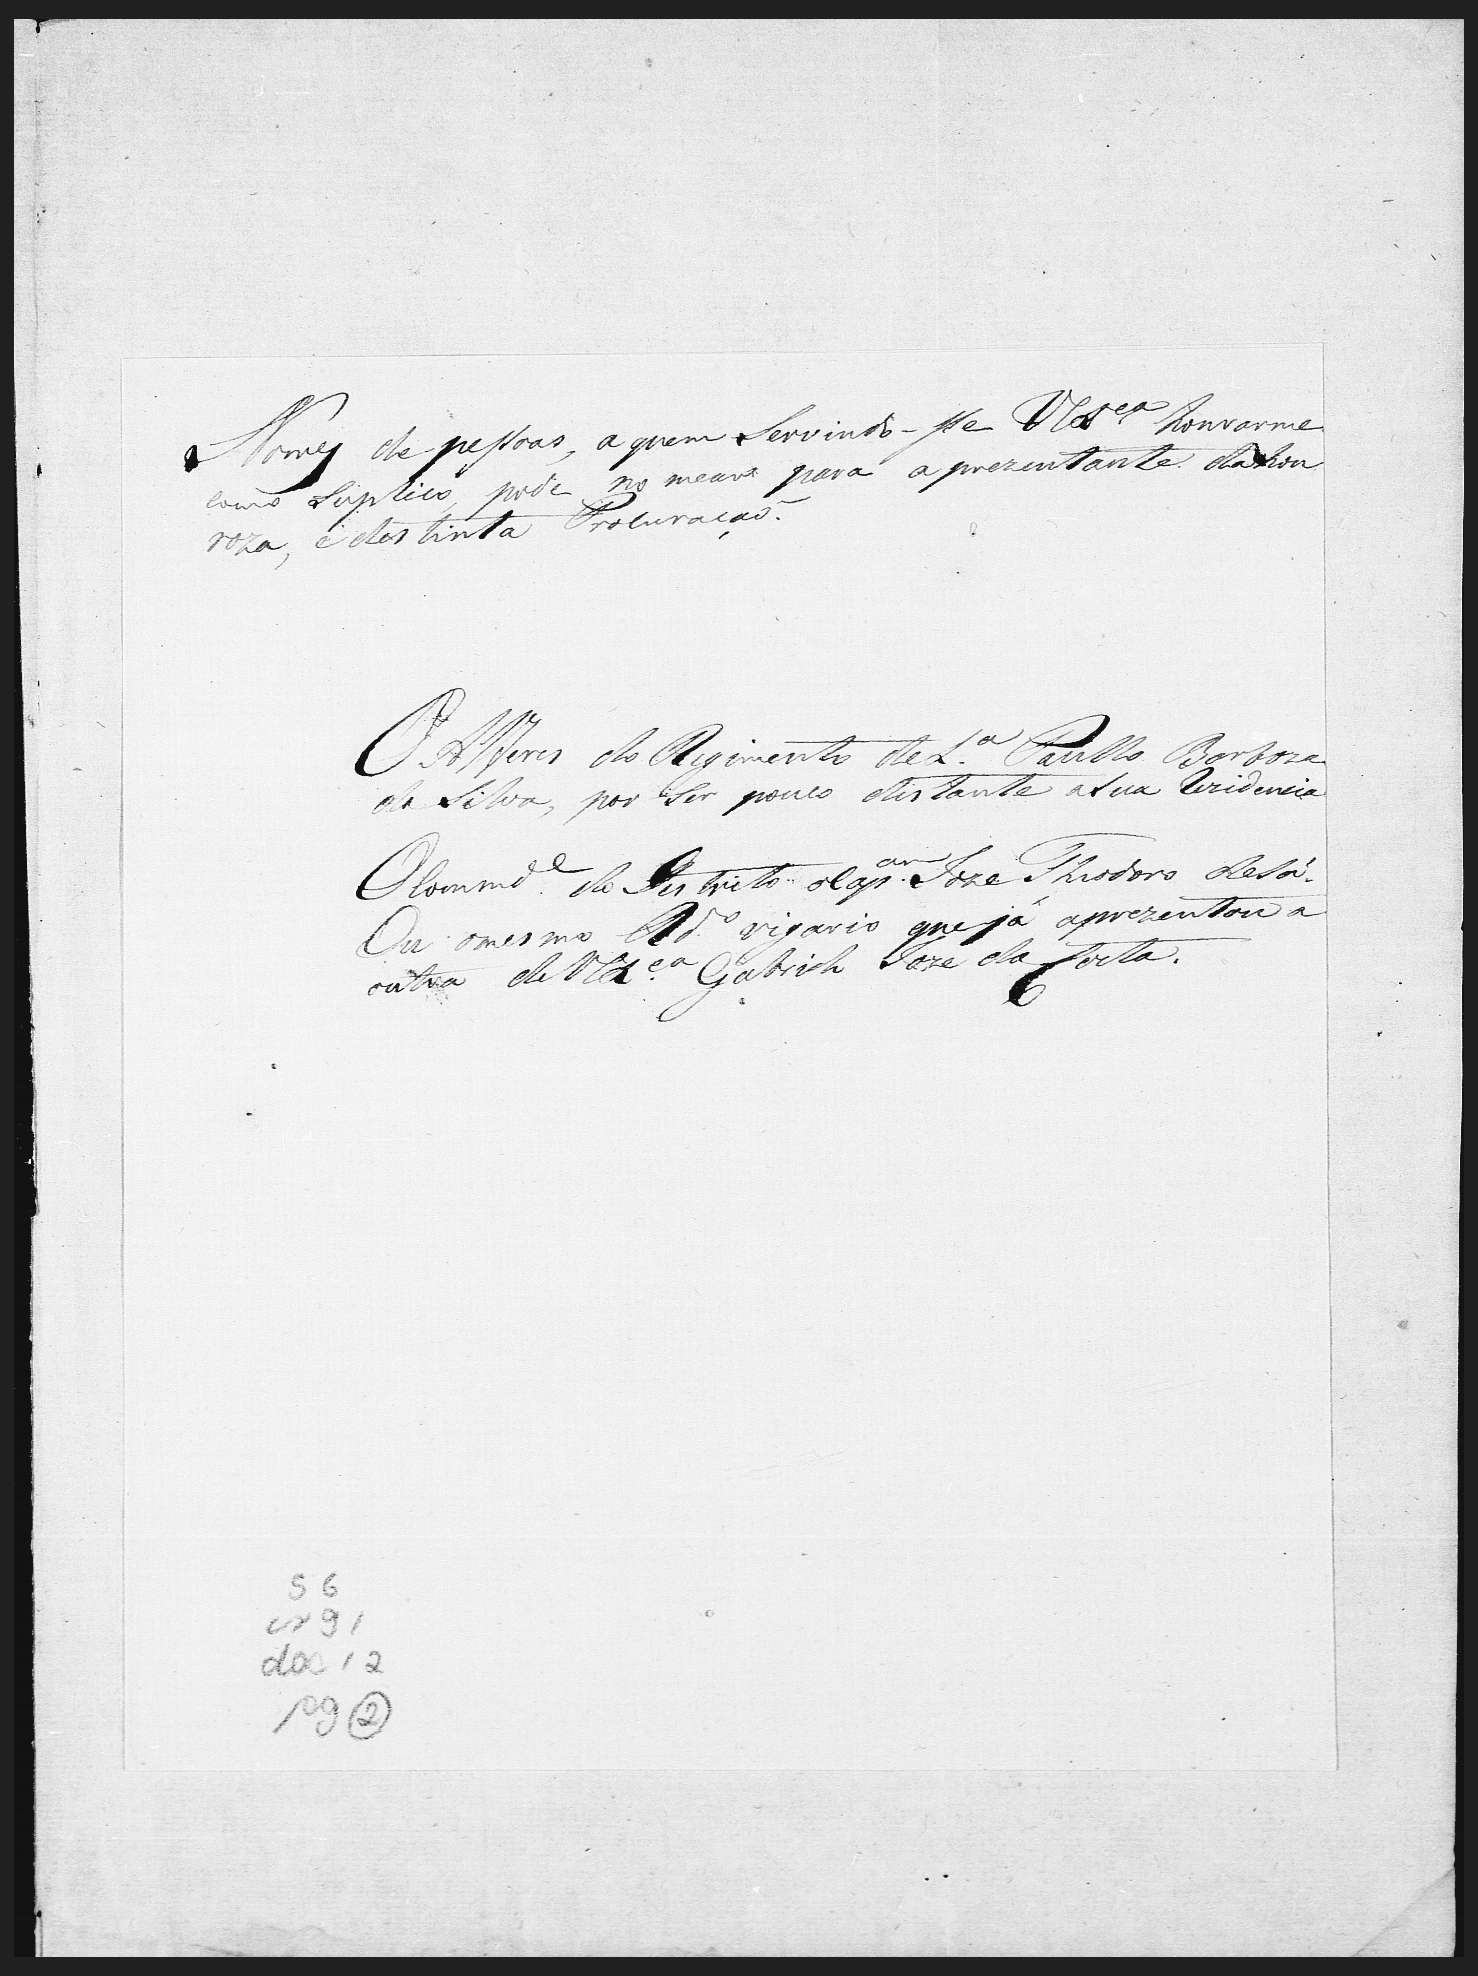 Nomes de pessoas, a quem Servindo-sse V Exª honrarme
como Suplico, pode no mear para a prezentante da hon
roza, e distinta Procuraçaõ.
O Alferes do Regimento de L.ª Paullo Barboza
da Silva, por Ser pouco distante a Sua Rezidencia
O Commde. do Distrito o Capam. Joze Thiodoro de Sá.
Ou o mesmo Rdo. vigario que já aprezentou a
outra de V Exca. Gabriel Joze da Costa.
S 6
cx 91
doc 12
pg 2